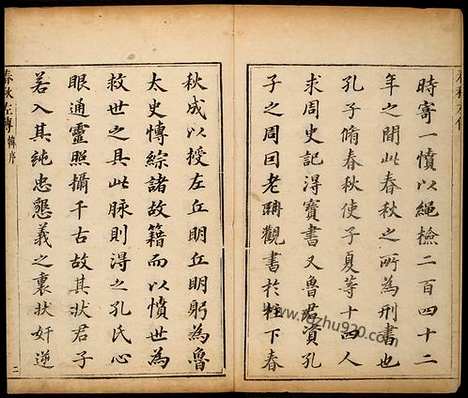 時寄一憤以繩檢二百四十二
年之間此春秋之所為刑書也
孔子脩春秋使子夏等十四人
求周史記得寶書又魯君資孔
子之周囘老聃觀書於柱下春
秋成以授左丘明丘明躬為魯
太史慱綜諸故籍而以憤世為
救世之具此脉則得之孔氏心
眼通靈照攝千古故其狀君子
若入其純忠懇義之裏狀奸逆
春秋左傳
序
二